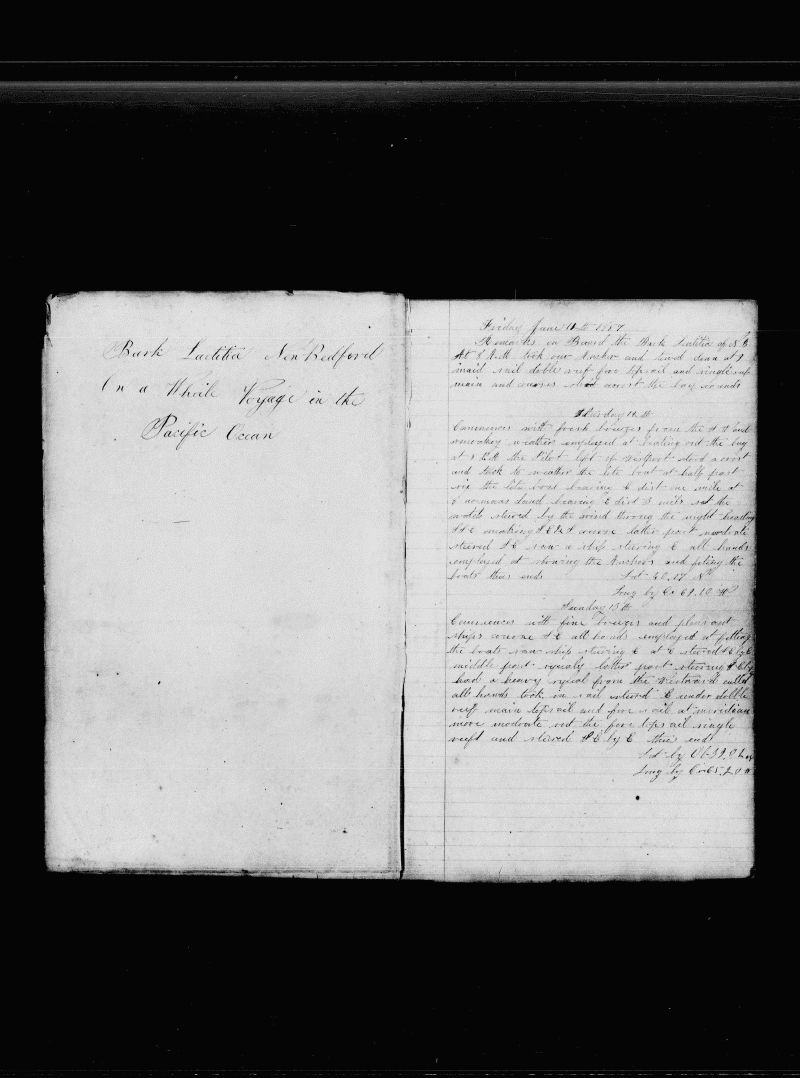 Bark Laetitia New Bedford
On a Whale Voyage in the
Pacific Ocean
Friday June 11th
Remarks on Board the Bark Laetitia of N B
At 8 A.M. took our Anchor and
maid sail doble reef fore topsail and single reef
main and courses stood acrost the bay so ends
12 th
Commences with fresh breezes from the and
smookey weather employed at beating out the bay
at P.M. the Pilot left of Westport stood a crost
and tack to weather the lite boat at half past
six the lite boat bearing E dist one mile at
8 nomans land bearing E dist 3 mile set the
watch steered by the wind throug the night heading
S S E making S E & S course latter part moderate
steered S E saw a ship steering E all hands
employed at stowing the Anchors and fiting the
boats thus ends Lat 40.17 N
Long by Cr 69.10 W
Sunday 13 th
Commences with fine breezes and pleasant
ships course S E all hands employed at fitting
the boats saw ship steering E at steered S E by E
middle part squaly latter part steering S E by
had a heavy squal from the Westward called
all hands took in sail steered E under dobble
reef main topsail and fore sail at meridian
more modrate set the fore topsail single
reeft and steered S E by E thus ends
Lat by Ob 39.0
Long by Cr 65.20 W